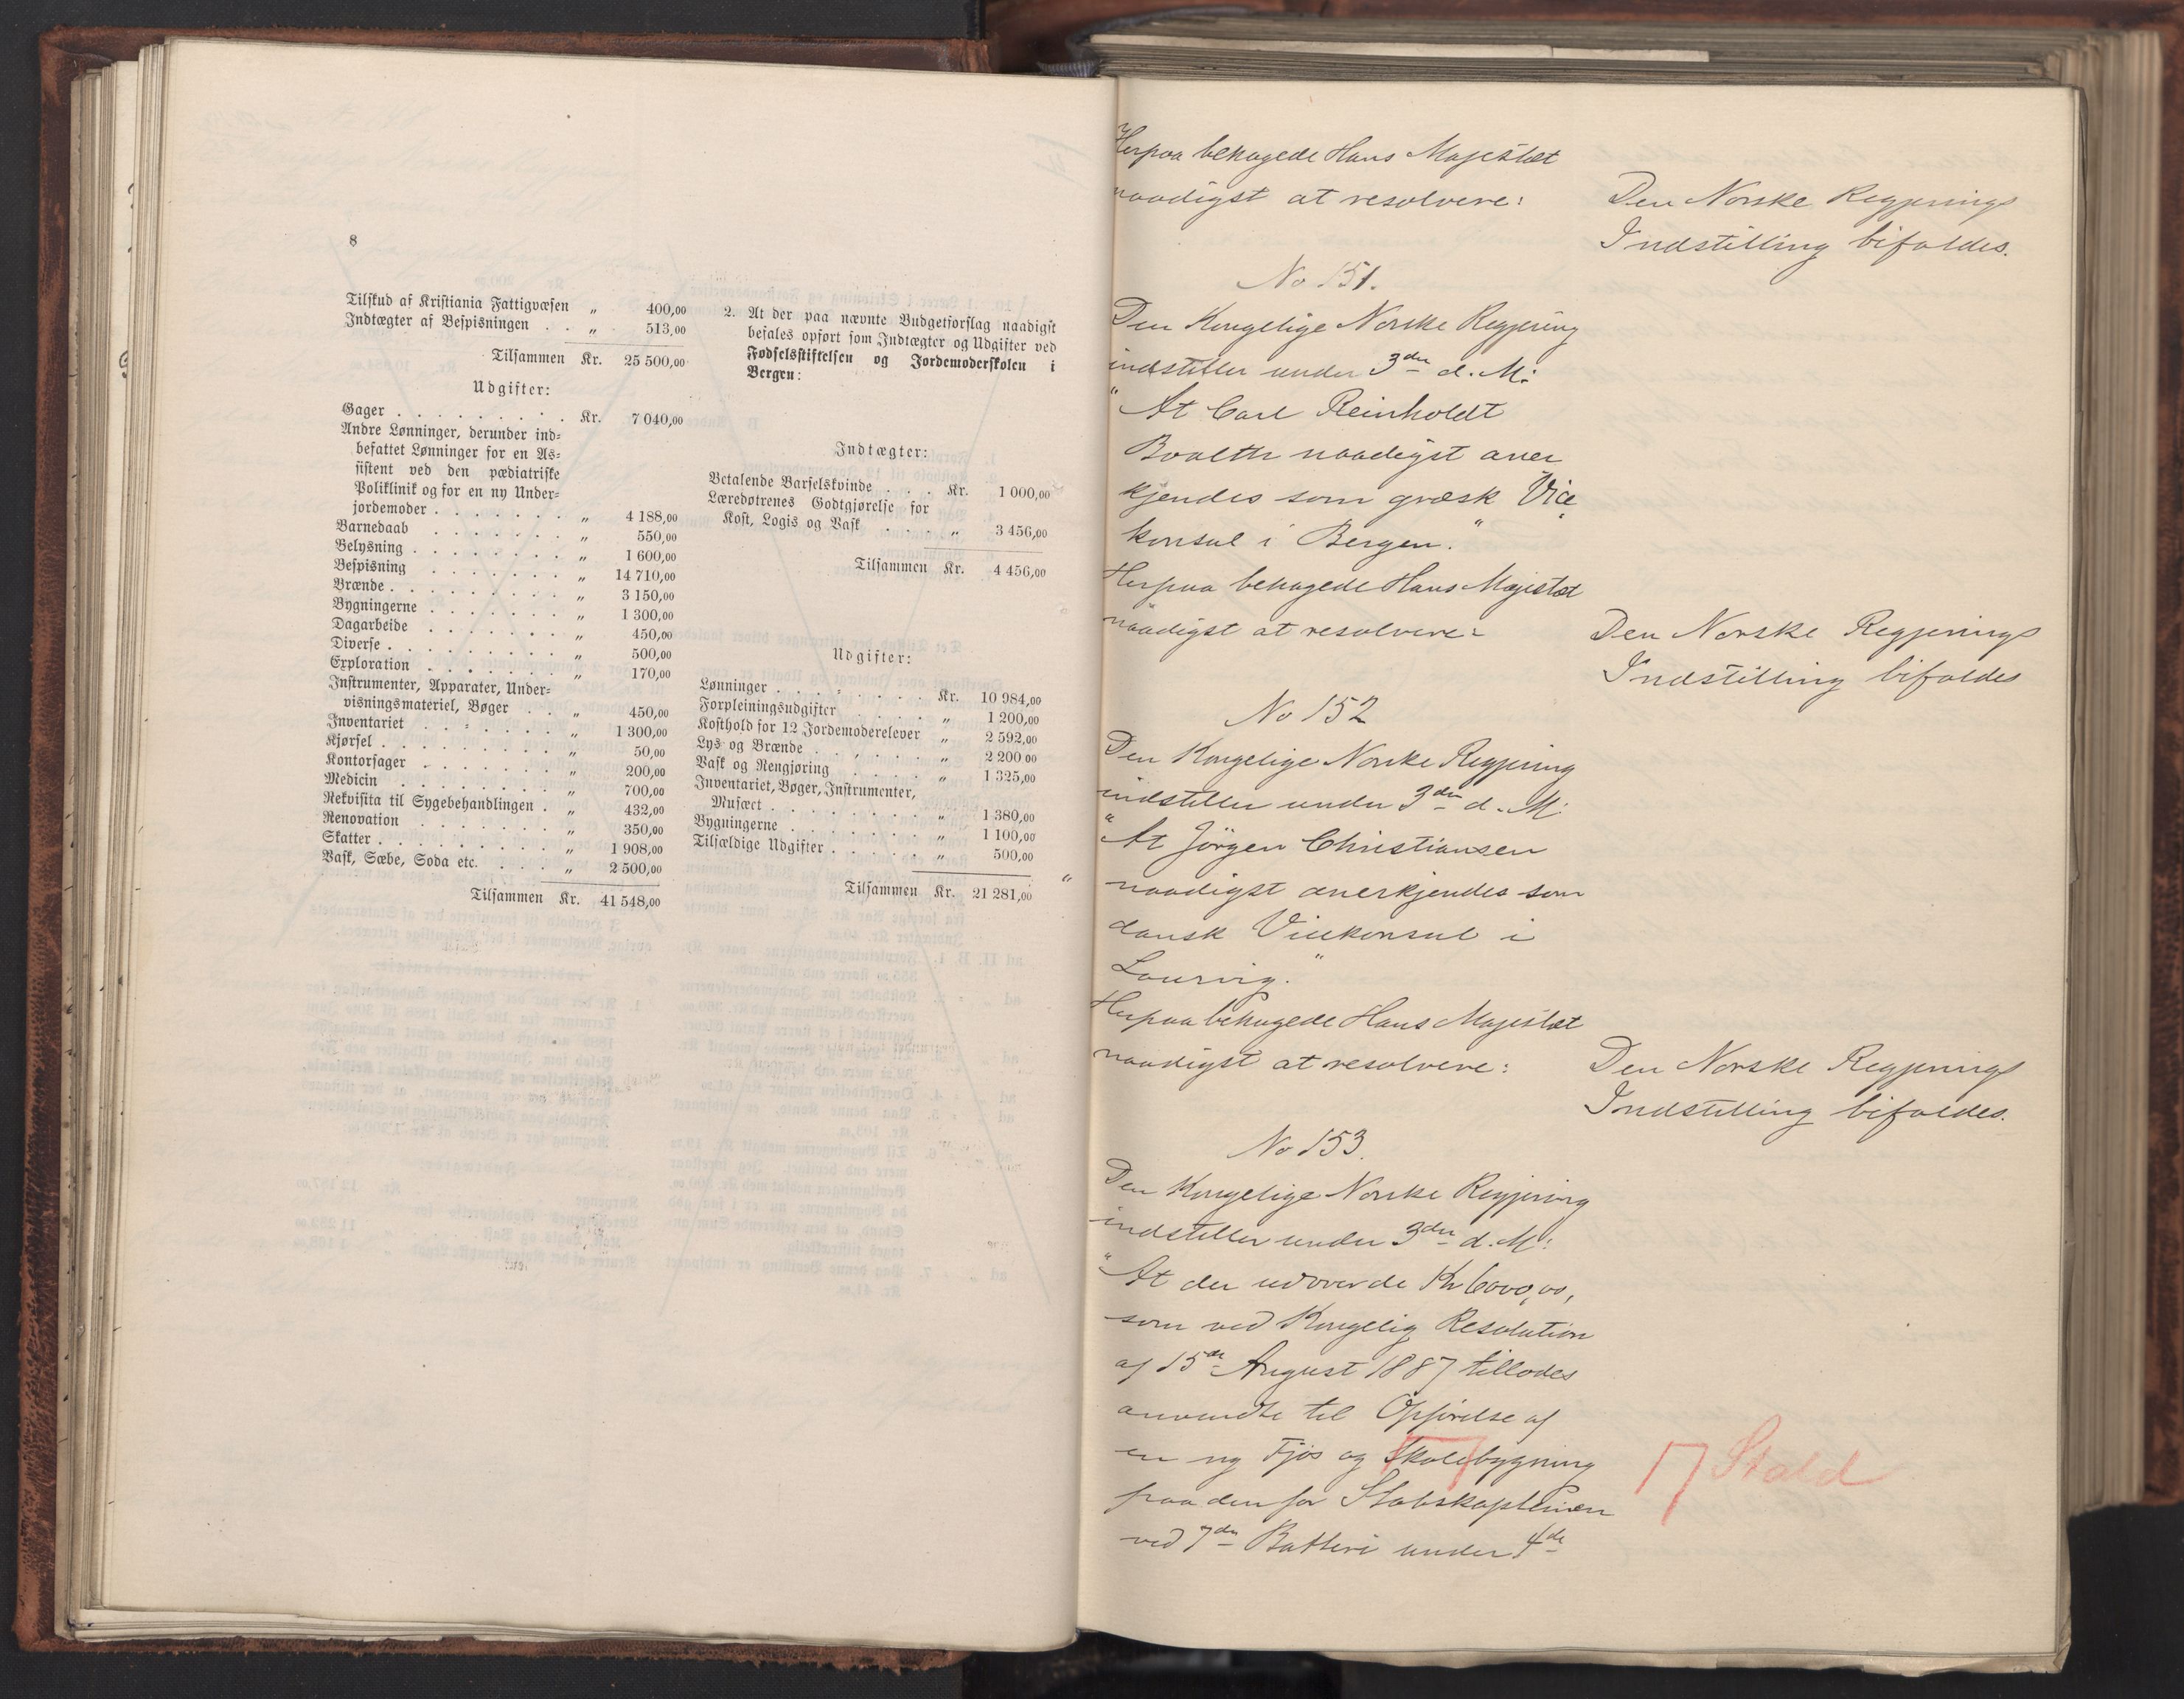 8
Tilskud af Kristiania Fattigvæsen „ 400,00
Indtægter af Bespisningen . . „ 513,00
Tilsammen Kr. 25 500,00
Udgifter:
Gager . . . . . . . . . Kr. 7 040,00
Andre Lønninger, derunder ind-
befattet Lønninger for en As-
sistent ved den pædiatriske
Poliklinik og for en ny Under-
jordemoder . . . . . . . „ 4 188,00
Barnedaab . . . . . . . „ 550,00
Belysning . . . . . . . . „ 1 600,00
Bespisning . . . . . . . „ 14 710,00
Brænde . . . . . . . . . „ 3 150,00
Bygningerne . . . . . . . „ 1 300,00
Dagarbeide . . . . . . . „ 450,00
Diverse . . . . . . . . . „ 500,00
Exploration . . . . . . . „ 170,00
Instrumenter, Apparater, Under-
visningsmateriel, Bøger . . „ 450,00
Inventariet . . . . . . . „ 1 300,00
Kjørsel . . . . . . . . . „ 50,00
Kontorsager . . . . . . . „ 200,00
Medicin . . . . . . . . „ 700,00
Rekvisita til Sygebehandlingen . „ 432,00
Renovation . . . . . . . „ 350,00
Skatter . . . . . . . . . „ 1 908,00
Vask, Sæbe, Soda etc. . . . „ 2 500,00
Tilsammen Kr. 41 548,00
2. At der paa nævnte Budgetforslag naadigst
befales opført som Indtægter og Udgifter ved
Fødselsstiftelsen og Jordemoderskolen i
Bergen:
Indtægter:
Betalende Barselskvinde . . . Kr. 1 000,00
Læredøtrenes Godtgjørelse for
Kost, Logis og Vask . . . . „ 3 456,00
Tilsammen Kr. 4 456,00
Udgifter:
Lønninger . . . . . . . . Kr. 10 984,00
Forpleiningsudgifter . . . . „ 1 200,00
Kosthold for 12 Jordemoderelever „ 2 592,00
Lys og Brænde . . . . . . „ 2 200 00
Vask og Rengjøring . . . . „ 1 325,00
Inventariet, Bøger, Instrumenter,
Musæet . . . . . . . . „ 1 380,00
Bygningerne . . . . . . . „ 1 100,00
Tilfældige Udgifter . . . . . „ 500,00
Tilsammen Kr. 21 281,00 "
Herpaa behagede Hans Majestæt
naadigst at resolvere:
Den Norske Regjerings
Indstilling bifaldes.
No 151.
Den Kongelige Norske Regjering
indstiller under 3die d. M:
"At Carl Reinholdt
naadigst aner
kjendes som græsk Vice
konsul i Bergen."
Herpaa behagede Hans Majestæt
naadigst at resolvere:
Den Norske Regjerings
Indstilling bifaldes
No 152
Den Kongelige Norske Regjering
indstiller under 3die d. M:
"At Jörgen Christiansen
naadigst anerkjendes som
dansk Vicekonsul i
Laurvig."
Herpaa behagede Hans Majestæt
naadigst at resolvere:
Den Norske Regjerings
Indstilling bifaldes.
No 153.
Den Kongelige Norske Regjering
indstiller under 3die d. M:
"At der udover de Kr 6000,00,
som ved Kongelig Resolution
af 15de August 1887 tillodes
anvendte til Opförelse af
en ny Fjøs og Skolebygning
Stald
paa den for Stabskapteinen
ved 7de Batteri under 4de